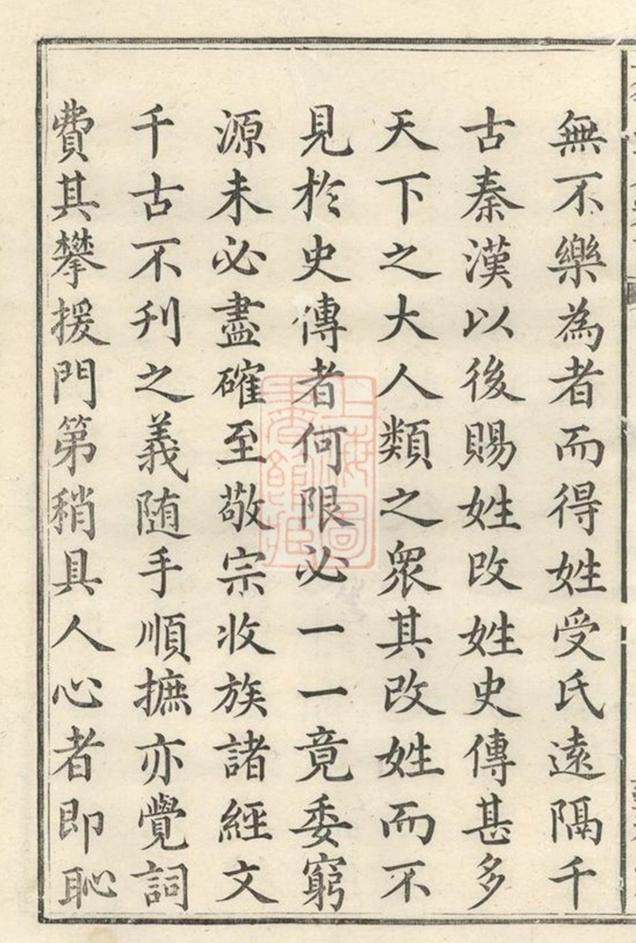 無不樂為者而得姓受氏遠隔千
古秦漢以後賜姓改姓史傳甚多
天下之大人類之衆其改姓而不
見於史傳者何限必一一竟委窮
源未必盡確至敬宗收族諸經文
千古不刋之義随手順摭亦覺詞
費其攀援門第稍具人心者即恥
上海圖書館藏